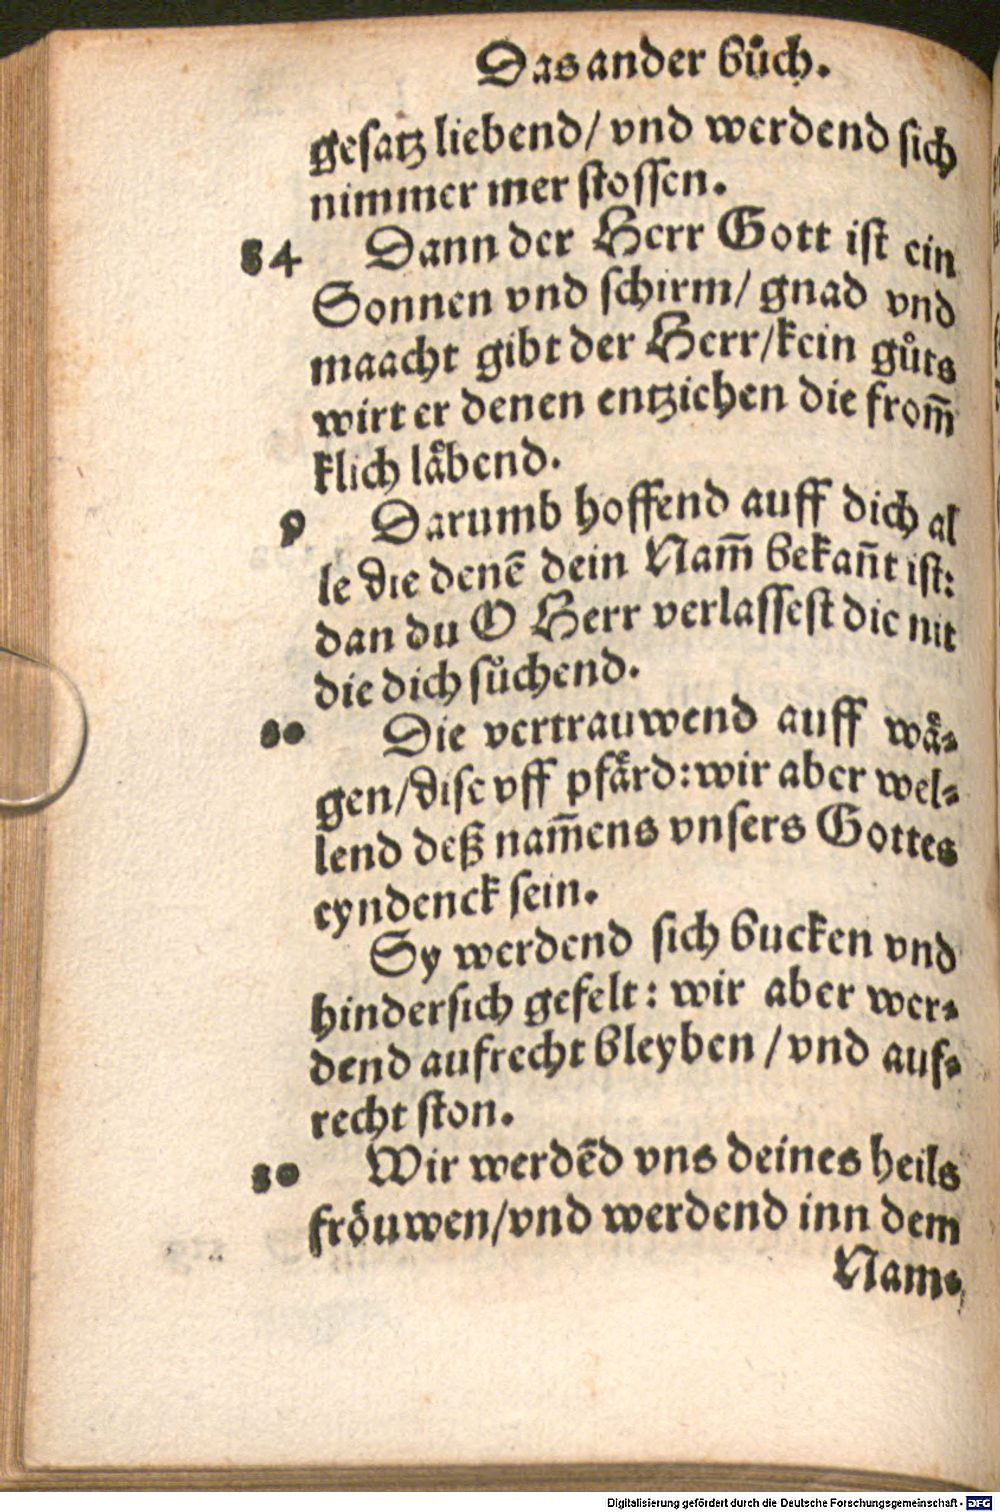 Das ander bůch.
gesatz liebend/ vnd werdend sich
nimmer mer stossen.
84 Dann der Herr Gott ist ein
Sonnen vnd schirm/ gnad vnd
maacht gibt der Herr/kein gůts
wirt er denen entziehen die from̄
klich låbend.
9 Darumb hoffend auff dich al
le die denē dein Nam̄ bekan̄t ist:
dan du O Herr verlassest die nit
die dich sůchend.
20 Die vertrauwend auff wå⸗
gen/dise vff pfård: wir aber wel⸗
lend deß nam̄ens vnsers Gottes
eyndenck sein.
Sy werdend sich bucken vnd
hindersich gefelt: wir aber wer⸗
dend aufrecht bleyben /vnd auf⸗
recht ston.
20 Wir werdēd vns deines heils
frôuwen/vnd werdend inn dem
Nam⸗
Digitalisierung gefördert durch die Deutsche Forschungsgemeinschaft - DFG